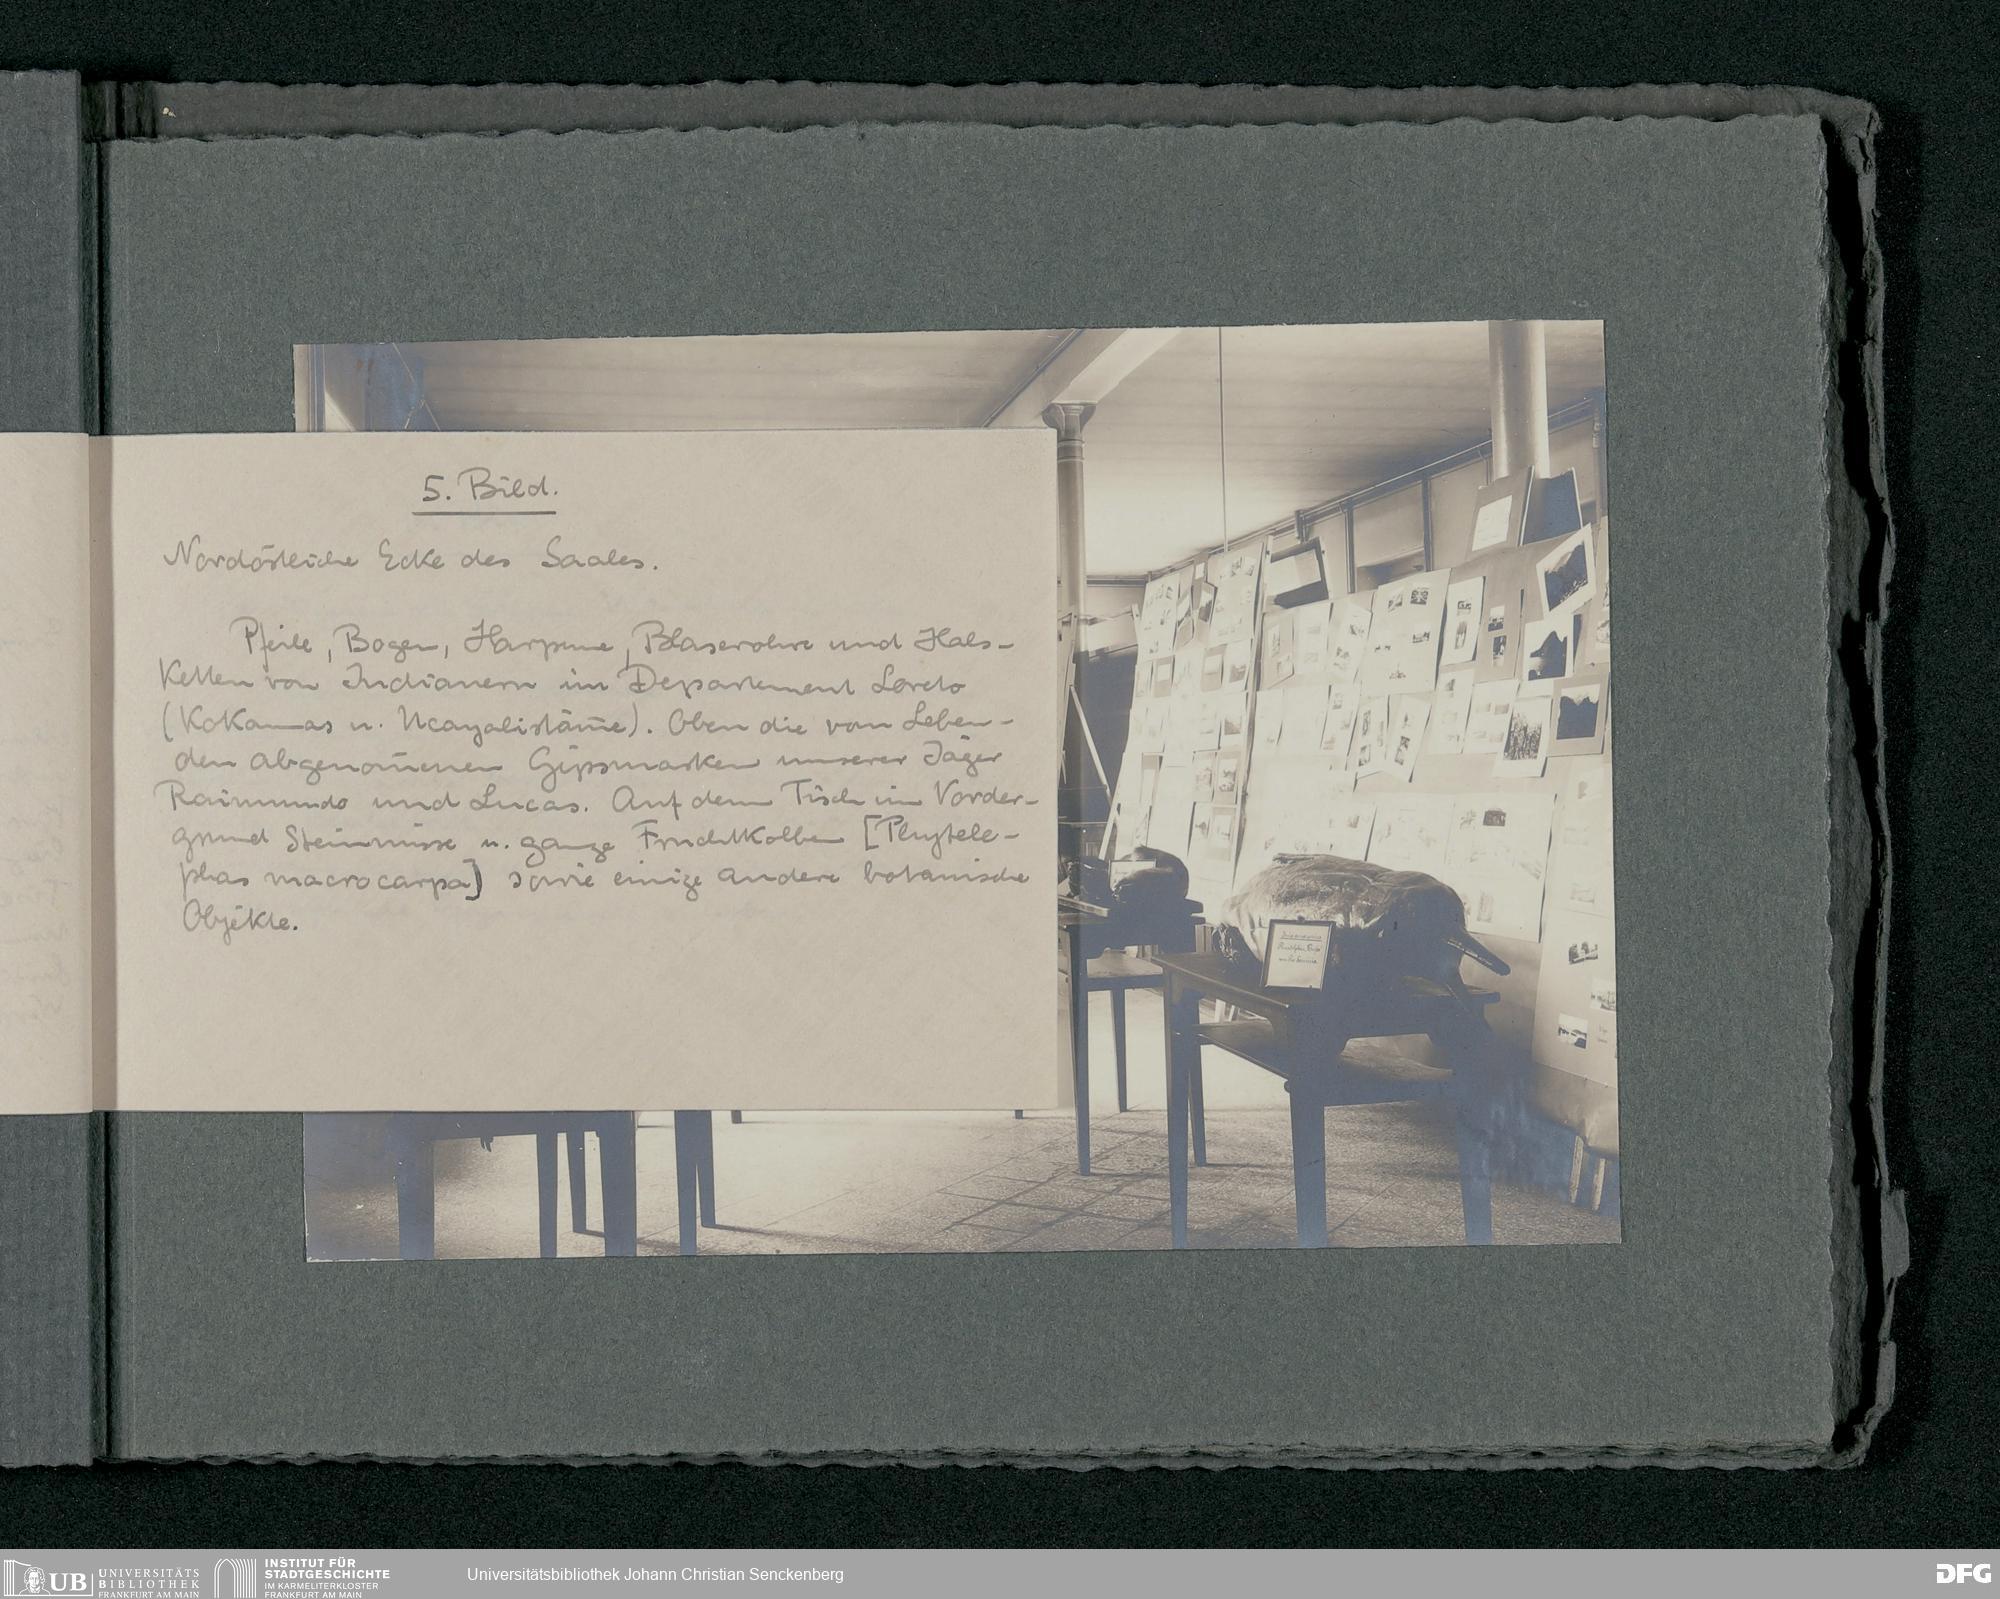 5. Bild.
Nordöstliche Ecke des Saales.
Pfeile, Bogen, Harpune, Blaserohre und Hals-
Ketten von Indianern im Departement Loreto
(Kokamas u. Ucayalistäm̅e). Oben die vom Leben-
den abgenom̅enen Gipsmasken unserer Jäger
Raimundo und Lucas. Auf dem Tisch im Vorder-
grund Steinnüsse u. ganze Fruchtkolben [Phytele-
phas macrocarpa] sowie einige andere botanische
Objekte.
UB UNIVERSITÄTS
BIBLIOTHEK
FRANKFURT AM MAIN
INSTITUT FÜR
STADTGESCHICHTE
IM KARMELITERKLOSTER
FRANKFURT AM MAIN
Universitätsbibliothek Johann Christian Senckenberg
DFG